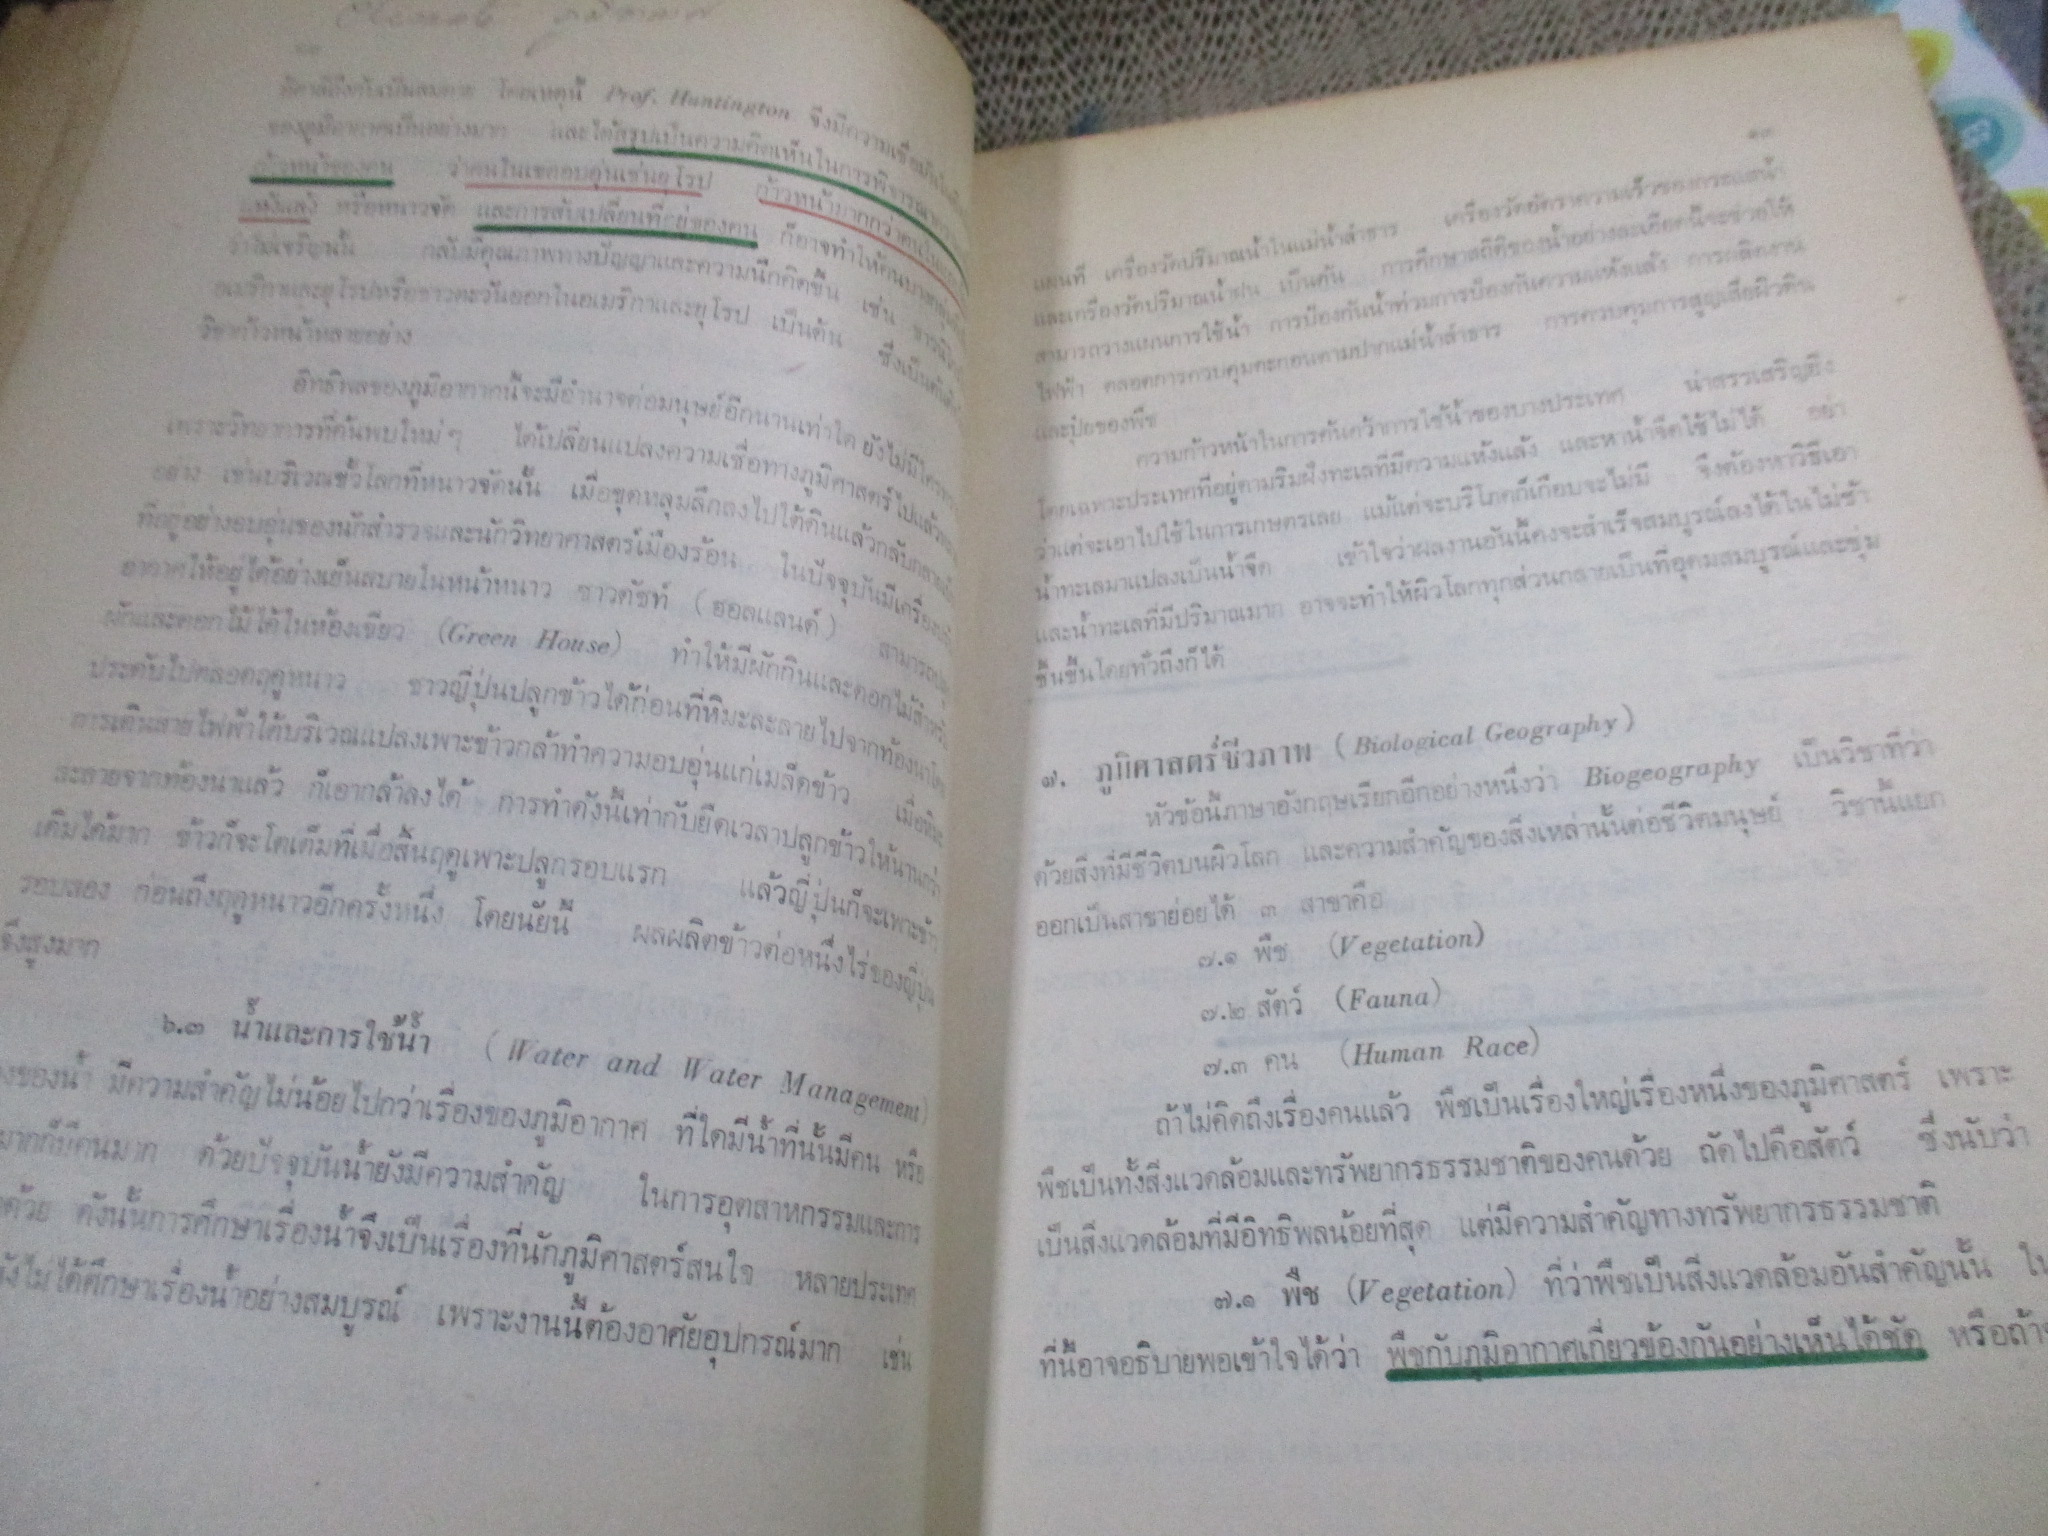 Prof. Huntington จึงมีความเชื่อมั่นใน
ของภูมิอากาศเป็นอย่างมาก และได้สรุปเป็นความคิดเห็นในการพิจารณา
ก้าวหน้าของคน ว่าคนในเขตอบอุ่นเช่นยุโรป ก้าวหน้ามากกว่าคนใน
แห้งแล้ง หรือหนาวจัด และการสับเปลี่ยนที่อยู่ของคน ก็อาจทำให้คนบาง
ว่าไม่เจริญนั้น กลับมีคุณภาพทางปัญญาและความนึกคิดขึ้น เช่น ชาว
อเมริกาและยุโรปหรือชาวตะวันออกในอเมริกาและยุโรป เป็นต้น ซึ่งเป็น
วิชาก้าวหน้าหลายอย่าง
อิทธิพลของภูมิอากาศนี้จะมีอำนาจต่อมนุษย์อีกนานเท่าใด ยังไม่มีใคร
เพราะวิทยาการที่ค้นพบใหม่ๆ ได้เปลี่ยนแปลงความเชื่อทางภูมิศาสตร์ไปแล้ว
อย่าง เช่นบริเวณขั้วโลกที่หนาวจัดนั้น เมื่อขุดหลุมลึกลงไปใต้ดินแล้วกลับกลาย
ที่อยู่อย่างอบอุ่นของนักสำรวจและนักวิทยาศาสตร์เมืองร้อน ในปัจจุบันมีเครื่อง
อากาศให้อยู่ได้อย่างเย็นสบายในหน้าหนาว ชาวดัชท์ (ฮอลแลนด์) สามารถ
ผักและดอกไม้ได้ในห้องเขียว (Green House) ทำให้มีผักกินและดอกไม้สำหรับ
ประดับไปตลอดฤดูหนาว ชาวญี่ปุ่นปลูกข้าวได้ก่อนที่หิมะละลายไปจากท้องนาโดย
การเดินสายไฟฟ้าใต้บริเวณแปลงเพาะข้าวกล้าทำความอบอุ่นแก่เมล็ดข้าว เมื่อหิมะ
ละลายจากท้องนาแล้ว ก็เอากล้าลงได้ การทำดังนี้เท่ากับยืดเวลาปลูกข้าวให้นานกว่า
เดิมได้มาก ข้าวก็จะโตเต็มที่เมื่อสิ้นฤดูเพาะปลูกรอบแรก แล้วญี่ปุ่นก็จะเพาะข้าว
รอบสอง ก่อนถึงฤดูหนาวอีกครั้งหนึ่ง โดยนัยนี้ ผลผลิตข้าวต่อหนึ่งไร่ของญี่ปุ่น
จึงสูงมาก
๖.๓ น้ำและการใช้น้ำ (Water and Water Management)
ของน้ำ มีความสำคัญไม่น้อยไปกว่าเรื่องของภูมิอากาศ ที่ใดมีน้ำที่นั้นมีคน หรือ
มากก็มีคนมาก ด้วยปัจจุบันน้ำยังมีความสำคัญ ในการอุตสาหกรรมและการ
ด้วย ดังนั้นการศึกษาเรื่องน้ำจึงเป็นเรื่องที่นักภูมิศาสตร์สนใจ หลายประเทศ
ยังไม่ได้ศึกษาเรื่องน้ำอย่างสมบูรณ์ เพราะงานนี้ต้องอาศัยอุปกรณ์มาก เช่น
๑๓
แผนที่ เครื่องวัดปริมาณน้ำในแม่น้ำลำธาร เครื่องวัดอัตราความเร็วของกระแสน้ำ
และเครื่องวัดปริมาณน้ำฝน เป็นต้น การศึกษาสถิติของน้ำอย่างละเอียดนี้จะช่วยให้
สามารถวางแผนการใช้น้ำ การป้องกันน้ำท่วมการป้องกันความแห้งแล้ง การผลิตงาน
ไฟฟ้า ตลอดการควบคุมตะกอนตามปากแม่น้ำลำธาร การควบคุมการสูญเสียผิวดิน
และปุ๋ยของพืช
ความก้าวหน้าในการค้นคว้าการใช้น้ำของบางประเทศ น่าสรรเสริญยิ่ง
โดยเฉพาะประเทศที่อยู่ตามริมฝั่งทะเลที่มีความแห้งแล้ง และหาน้ำจืดใช้ไม่ได้ อย่า
ว่าแต่จะเอาไปใช้ในการเกษตรเลย แม้แต่จะบริโภคก็เกือบจะไม่มี จึงต้องหาวิธีเอา
น้ำทะเลมาแปลงเป็นน้ำจืด เข้าใจว่าผลงานอันนี้คงจะสำเร็จสมบูรณ์ลงได้ในไม่ช้า
และน้ำทะเลที่มีปริมาณมาก อาจจะทำให้ผิวโลกทุกส่วนกลายเป็นที่อุดมสมบูรณ์และชุ่ม
ชื้นขึ้นโดยทั่วถึงก็ได้
๗. ภูมิศาสตร์ชีวภาพ (Biological Geography)
หัวข้อนี้ภาษาอังกฤษเรียกอีกอย่างหนึ่งว่า Biogeography เป็นวิชาที่ว่า
ด้วยสิ่งที่มีชีวิตบนผิวโลก และความสำคัญของสิ่งเหล่านั้นต่อชีวิตมนุษย์ วิชานี้แยก
ออกเป็นสาขาย่อยได้ ๓ สาขาคือ
๗.๑ พืช (Vegetation)
๗.๒ สัตว์ (Fauna)
๗.๓ คน (Human Race)
ถ้าไม่คิดถึงเรื่องคนแล้ว พืชเป็นเรื่องใหญ่เรื่องหนึ่งของภูมิศาสตร์ เพราะ
พืชเป็นทั้งสิ่งแวดล้อมและทรัพยากรธรรมชาติของคนด้วย ถัดไปคือสัตว์ ซึ่งนับว่า
เป็นสิ่งแวดล้อมที่มีอิทธิพลน้อยที่สุด แต่มีความสำคัญทางทรัพยากรธรรมชาติ
๗.๑ พืช (Vegetation) ที่ว่าพืชเป็นสิ่งแวดล้อมอันสำคัญนั้น ใน
ที่นี้อาจอธิบายพอเข้าใจได้ว่า พืชกับภูมิอากาศเกี่ยวข้องกันอย่างเห็นได้ชัด หรือถ้า